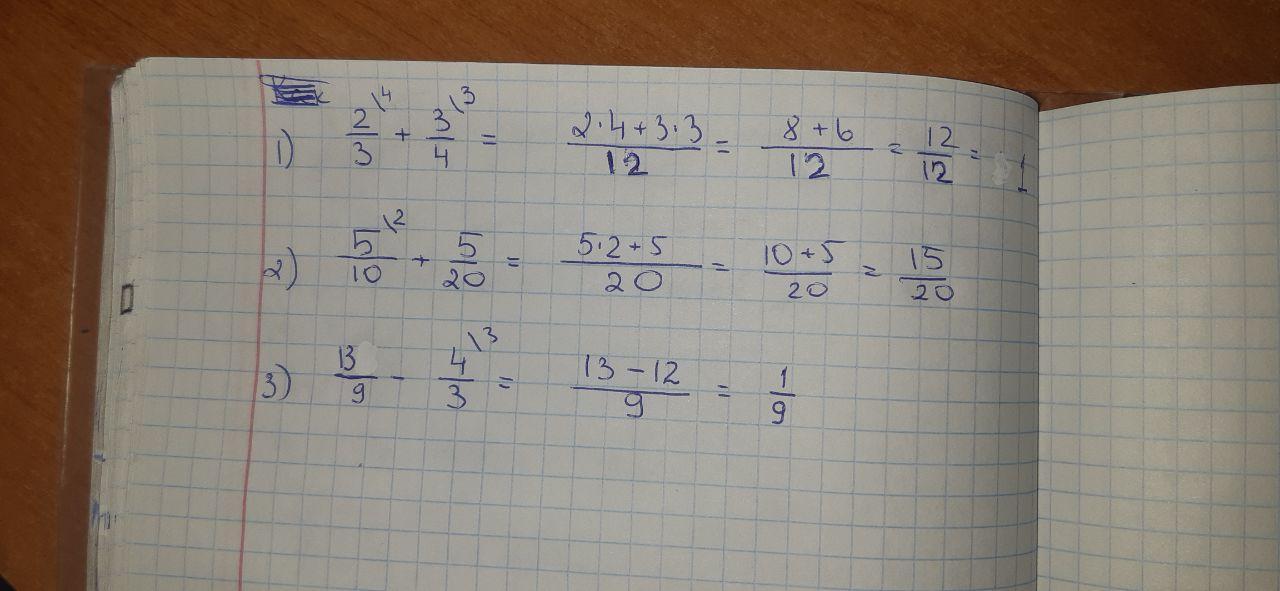 1) 2\4/3 + 3\3/4 = 2·4+3·3/12 = 8+6/12 = 12/12 = 1
2) 5\2/10 + 5/20 = 5·2+5/20 = 10+5/20 = 15/20
3) 13/9 - 4\3/3 = 13-12/9 = 1/9